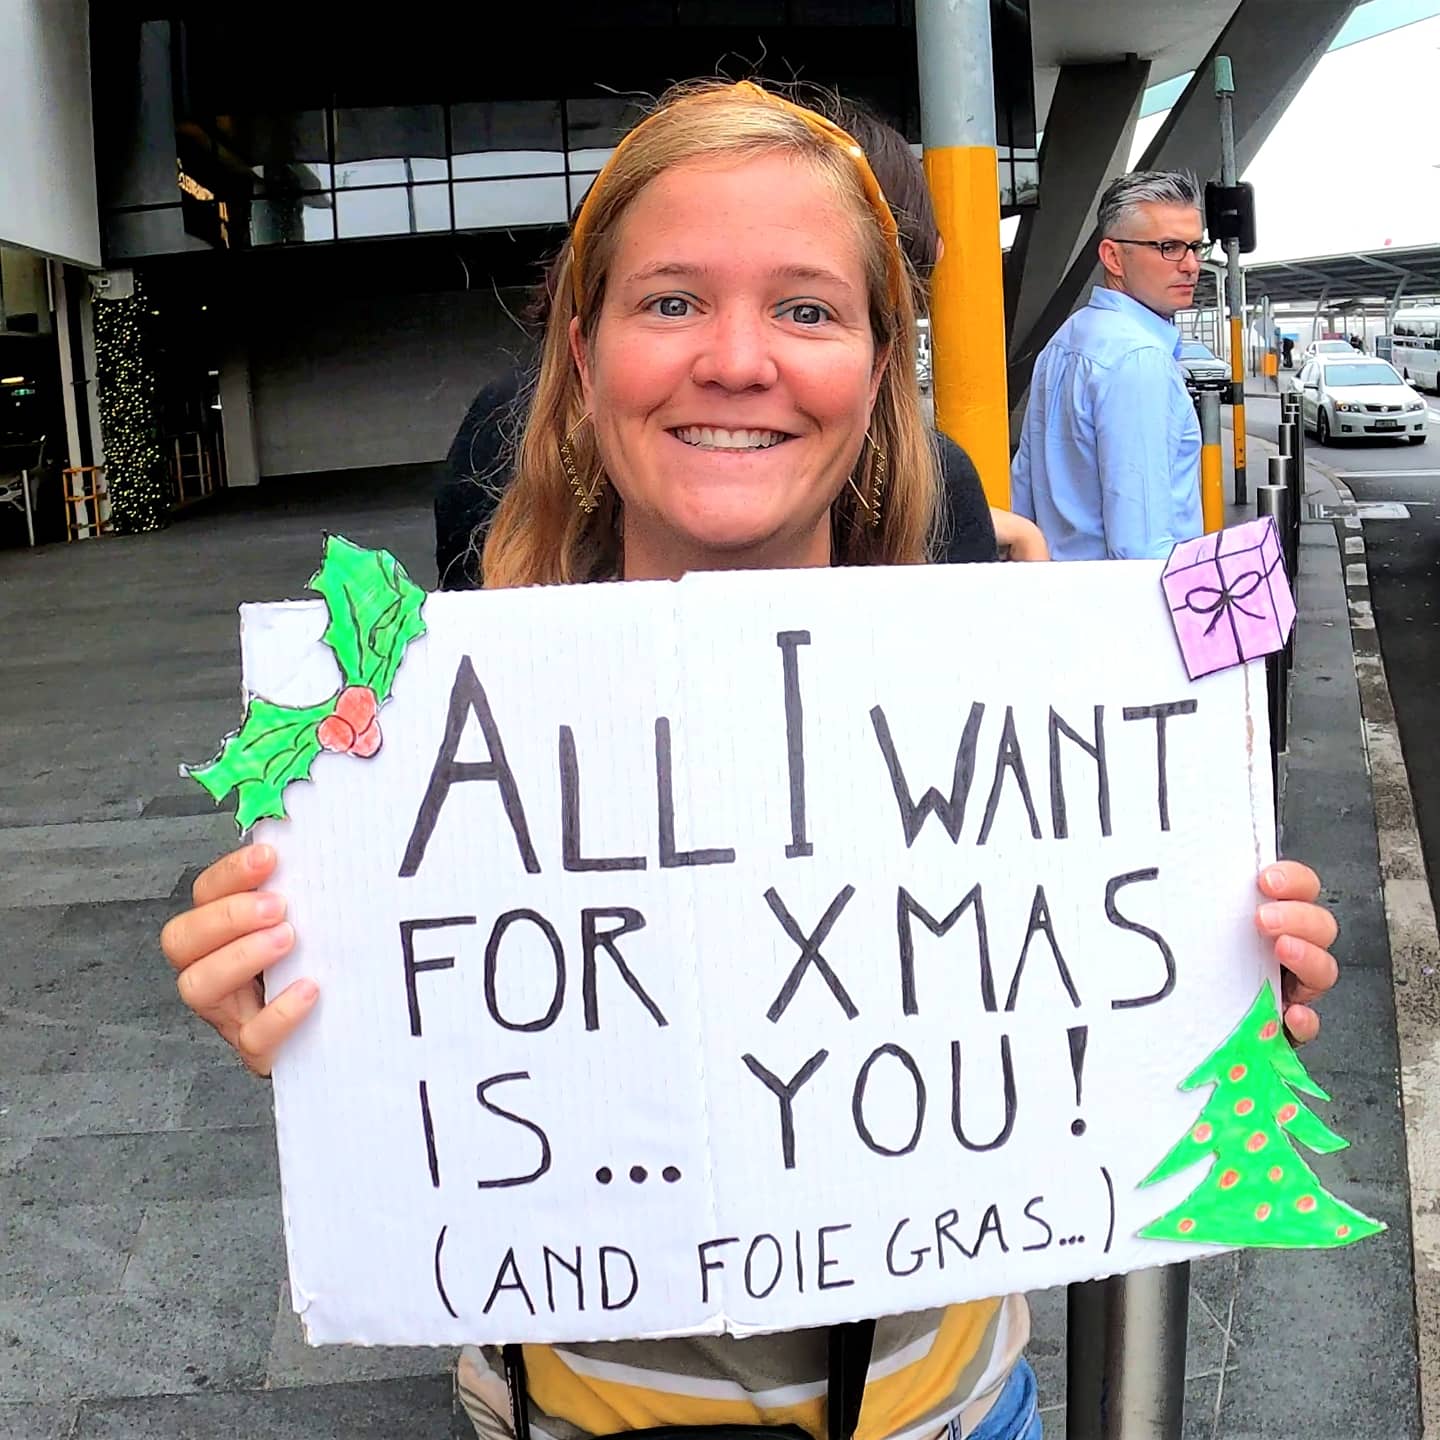 ALL I WANT
FOR XMAS
IS... YOU!
(AND FOIE GRAS...)